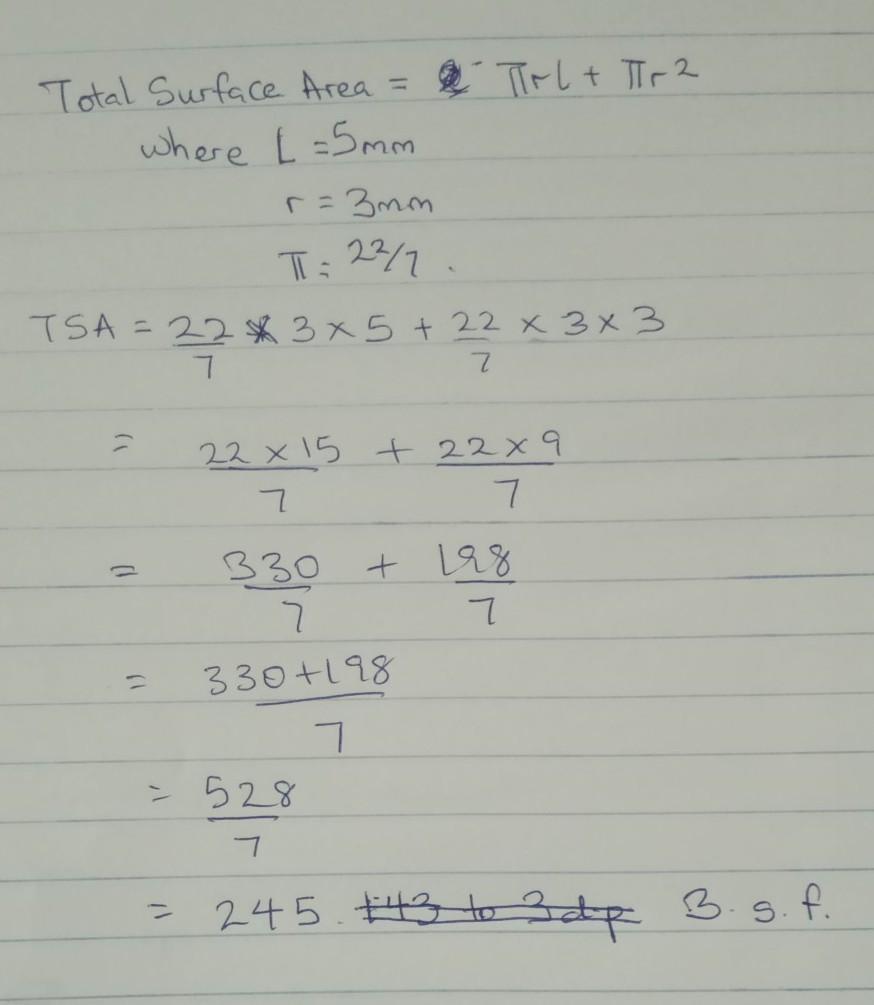 Total Surface Area = πrl + πr2
where L = 5mm
r = 3mm
π = 22/7.
TSA = 22/7 × 3 × 5 + 22/7 × 3 × 3
= 22 × 15/7 + 22 × 9/7
= 330/7 + 198/7
= 330+198/7
= 528/7
= 245. 143 to 3dp 3. s. f.